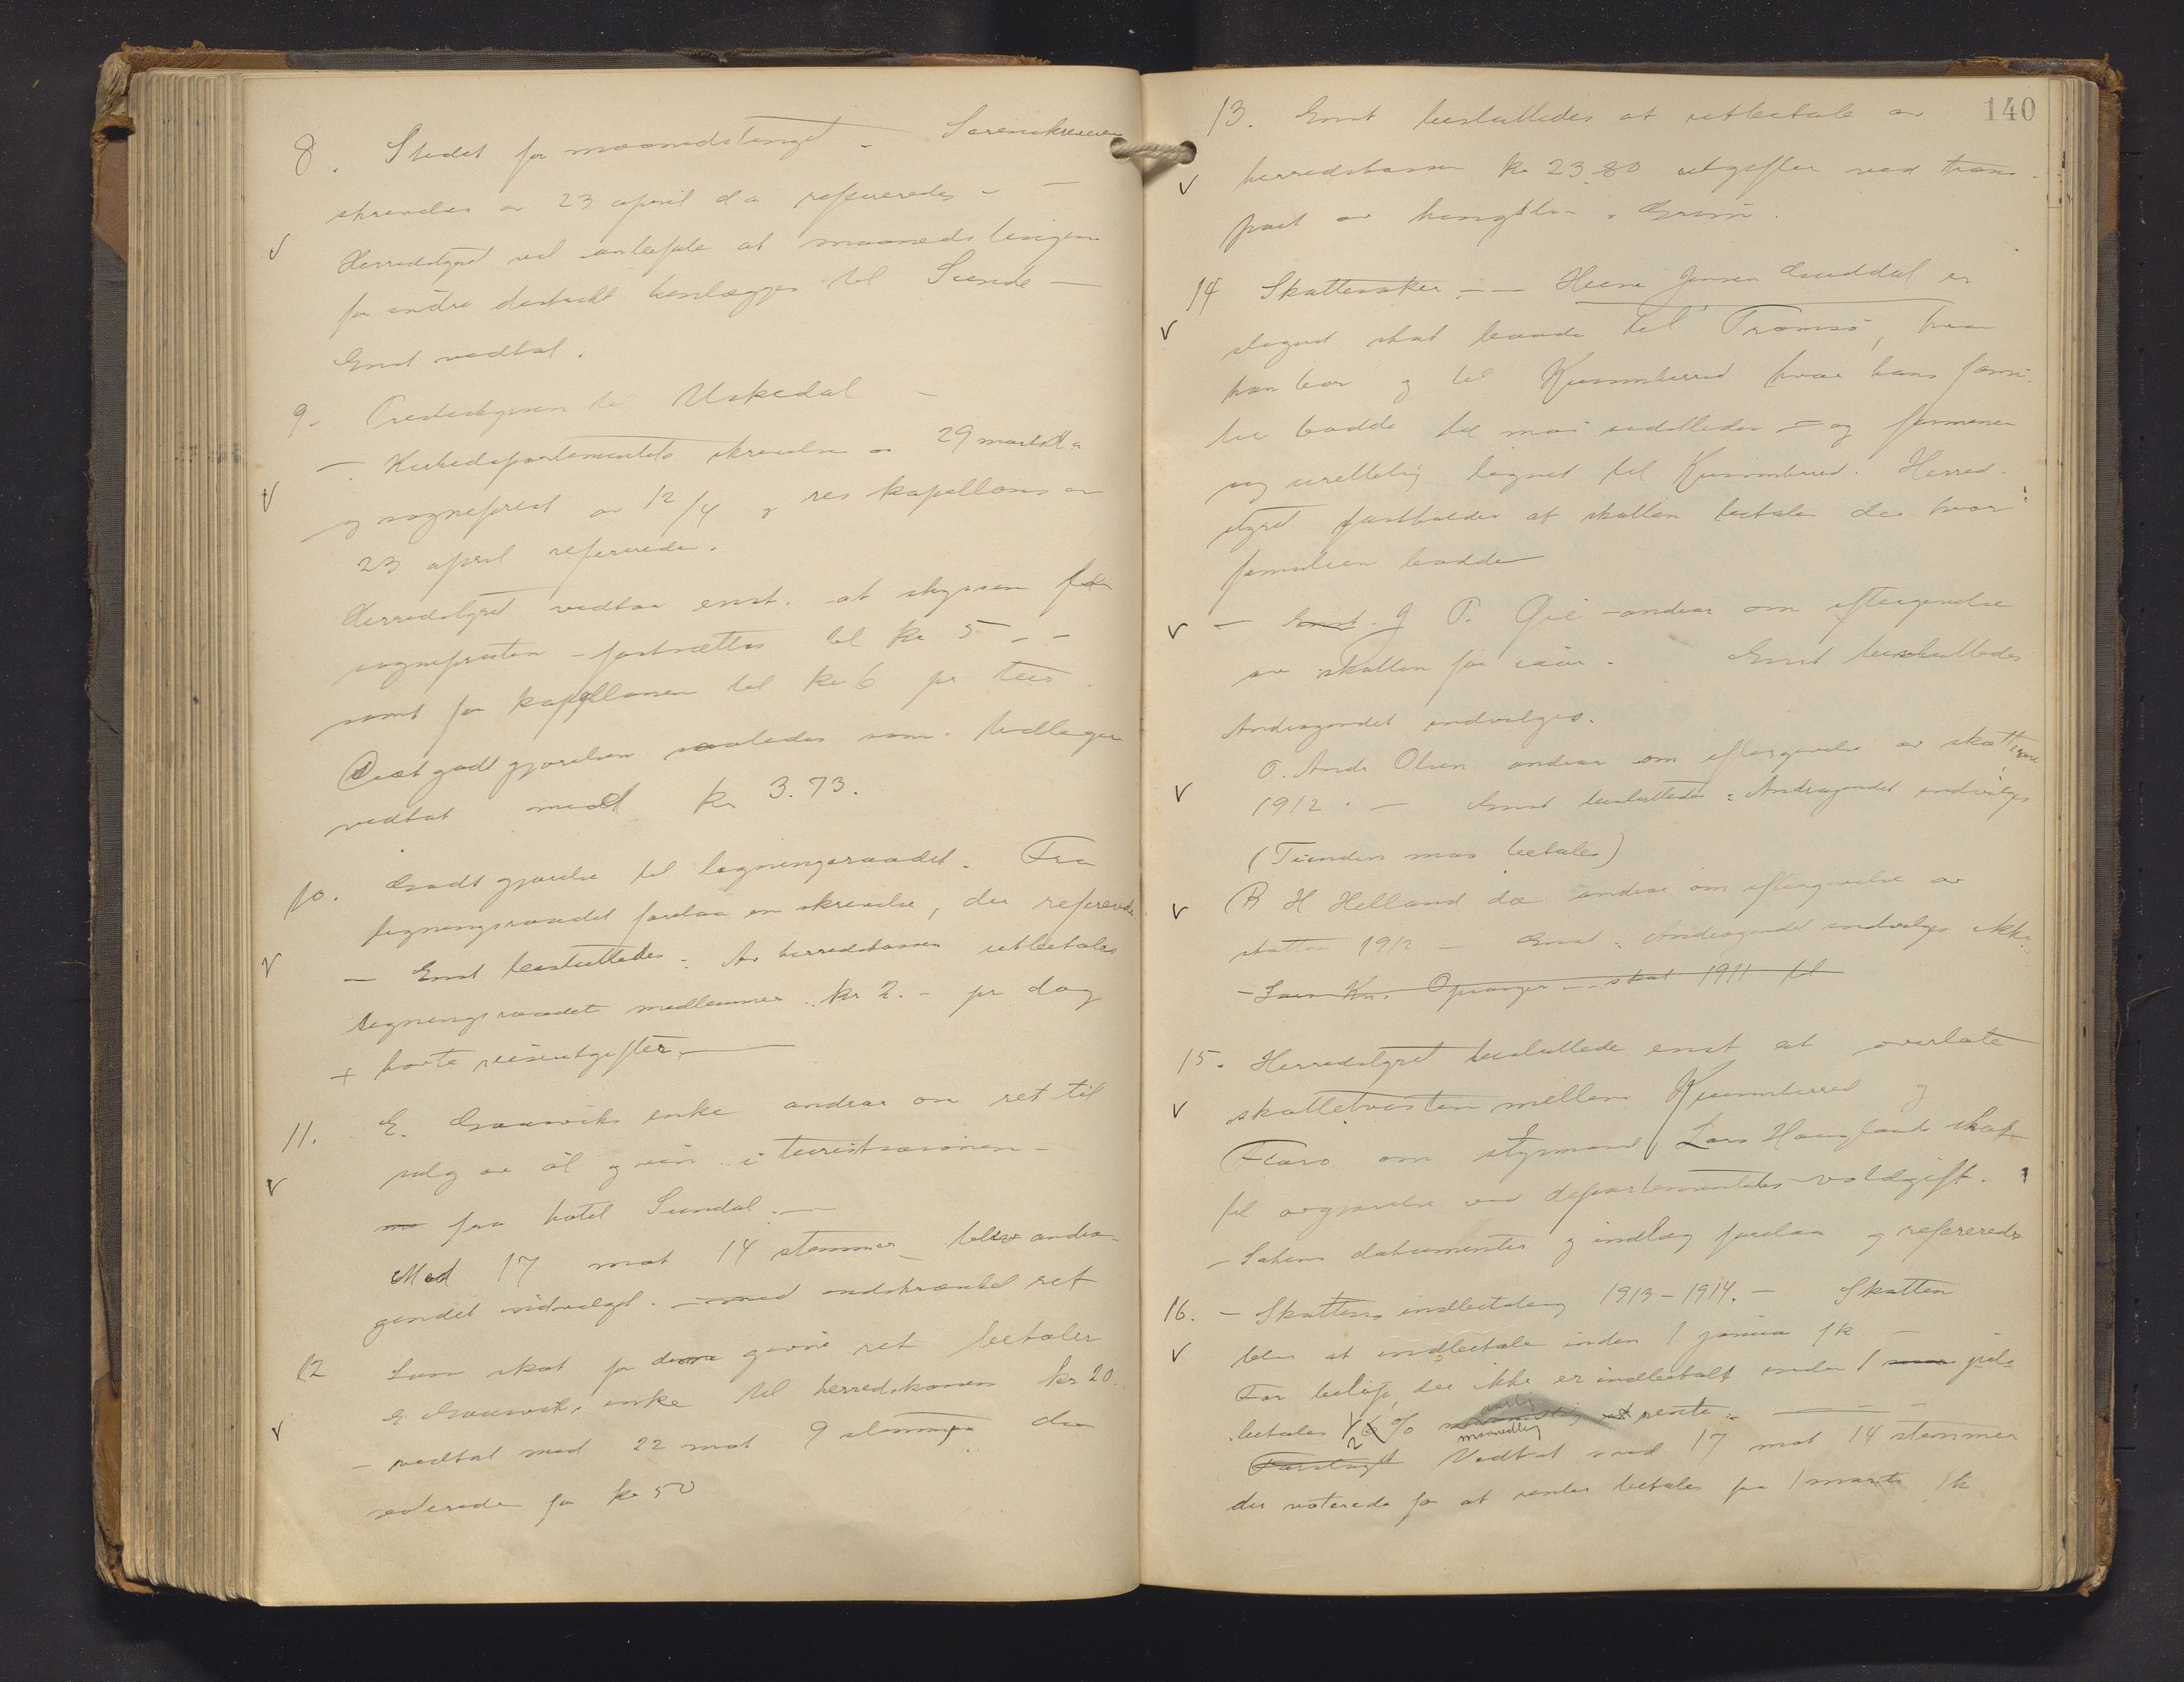 8. Stedet for maanedstinget. Sorenskriverens
skrivelse av 23 april d a refereredes –
Herredstyret vil anbefale at maanedstingene
for indre distrikt henlægges til Sunde –
Enst vedtat.
9. Presteskyssen til Uskedal –
– Kirkedepartementets skrivelse av 29 marts d a
og sogneprest av 12/4 & res kapellans av
23 april refereredes.
Herredstyret vedtar enst. at skyssen for
sognepresten fastsættes til kr 5 –
samt for kapellanen til kr 6 pr tur.
Diætgodtgjørelsen saaledes som tidligere
vedtat med kr 3.73.
10. Godtgjørelse til ligningsraadet. Fra
ligningsraadet forelaa en skrivelse, der refereredes
– Enst besluttedes: Av herredskassen utbetales
ligningsraadets medlemmer kr 2.– pr dag
+ havte reiseutgifter.
11. E. Gausviks enke andrar om ret til
salg av øl og vin i turistsæsonen –
fra hotel Sundal. –
Med 17 mot 14 stemmer blev andra-
gendet indvilget. – med indskrænket ret
12 Som skat for denne givne ret betaler
E Gausviks enke til herredskassen kr 20.
– vedtat med 22 mot 9 stemmer der
voterede for kr 50
140
13. Enst besluttedes at utbetale av
herredskassen kr 23.80 utgifter ved trans-
port av hingsten "Grim".
14 Skattesaker. – Jensen er
ilignet skat baade til Tromsø, hvor
han bor og til Kvinnherred hvor hans fami-
lie bodde til mai sidstleden – og formener
sig urettelig lignet til Kvinnherred. Herred-
styret fastholder at skatten betales der hvor
familien bodde
– Enst. J T. Øie andrar om eftergivelse
av skatten for iaar. Enst besluttedes
Andragendet indvilges.
O. Andr Olsen andrar om eftergivelse av skatten
1912. – Enst besluttedes: Andragendet indvilges
(Tienden maa betales)
B H Helland do andrar om eftergivelse av
skatten 1912 – Enst: Andragendet indvilges ikke.
– Lars Kn. Opsanger – skat 1911 til
15. Herredstyret besluttede enst at overlate
skattetvisten mellem Kvinnherred og
om styrmand Lars Haugland skat
til avgjørelse ved departementets voldgift.
– Sakens dokumenter og indlæg forelaa og refereredes
16. – Skattens indbetaling 1913–1914. – Skatten
blir at indbetale inden 1 januar f k –
For beløp, der ikke er indbetalt inden 1 juli
betales 1/2 % maanedlig rente. –
Forslaget Vedtat med 17 mot 14 stemmer
der voterede for at renter betales fra 1 marts f k